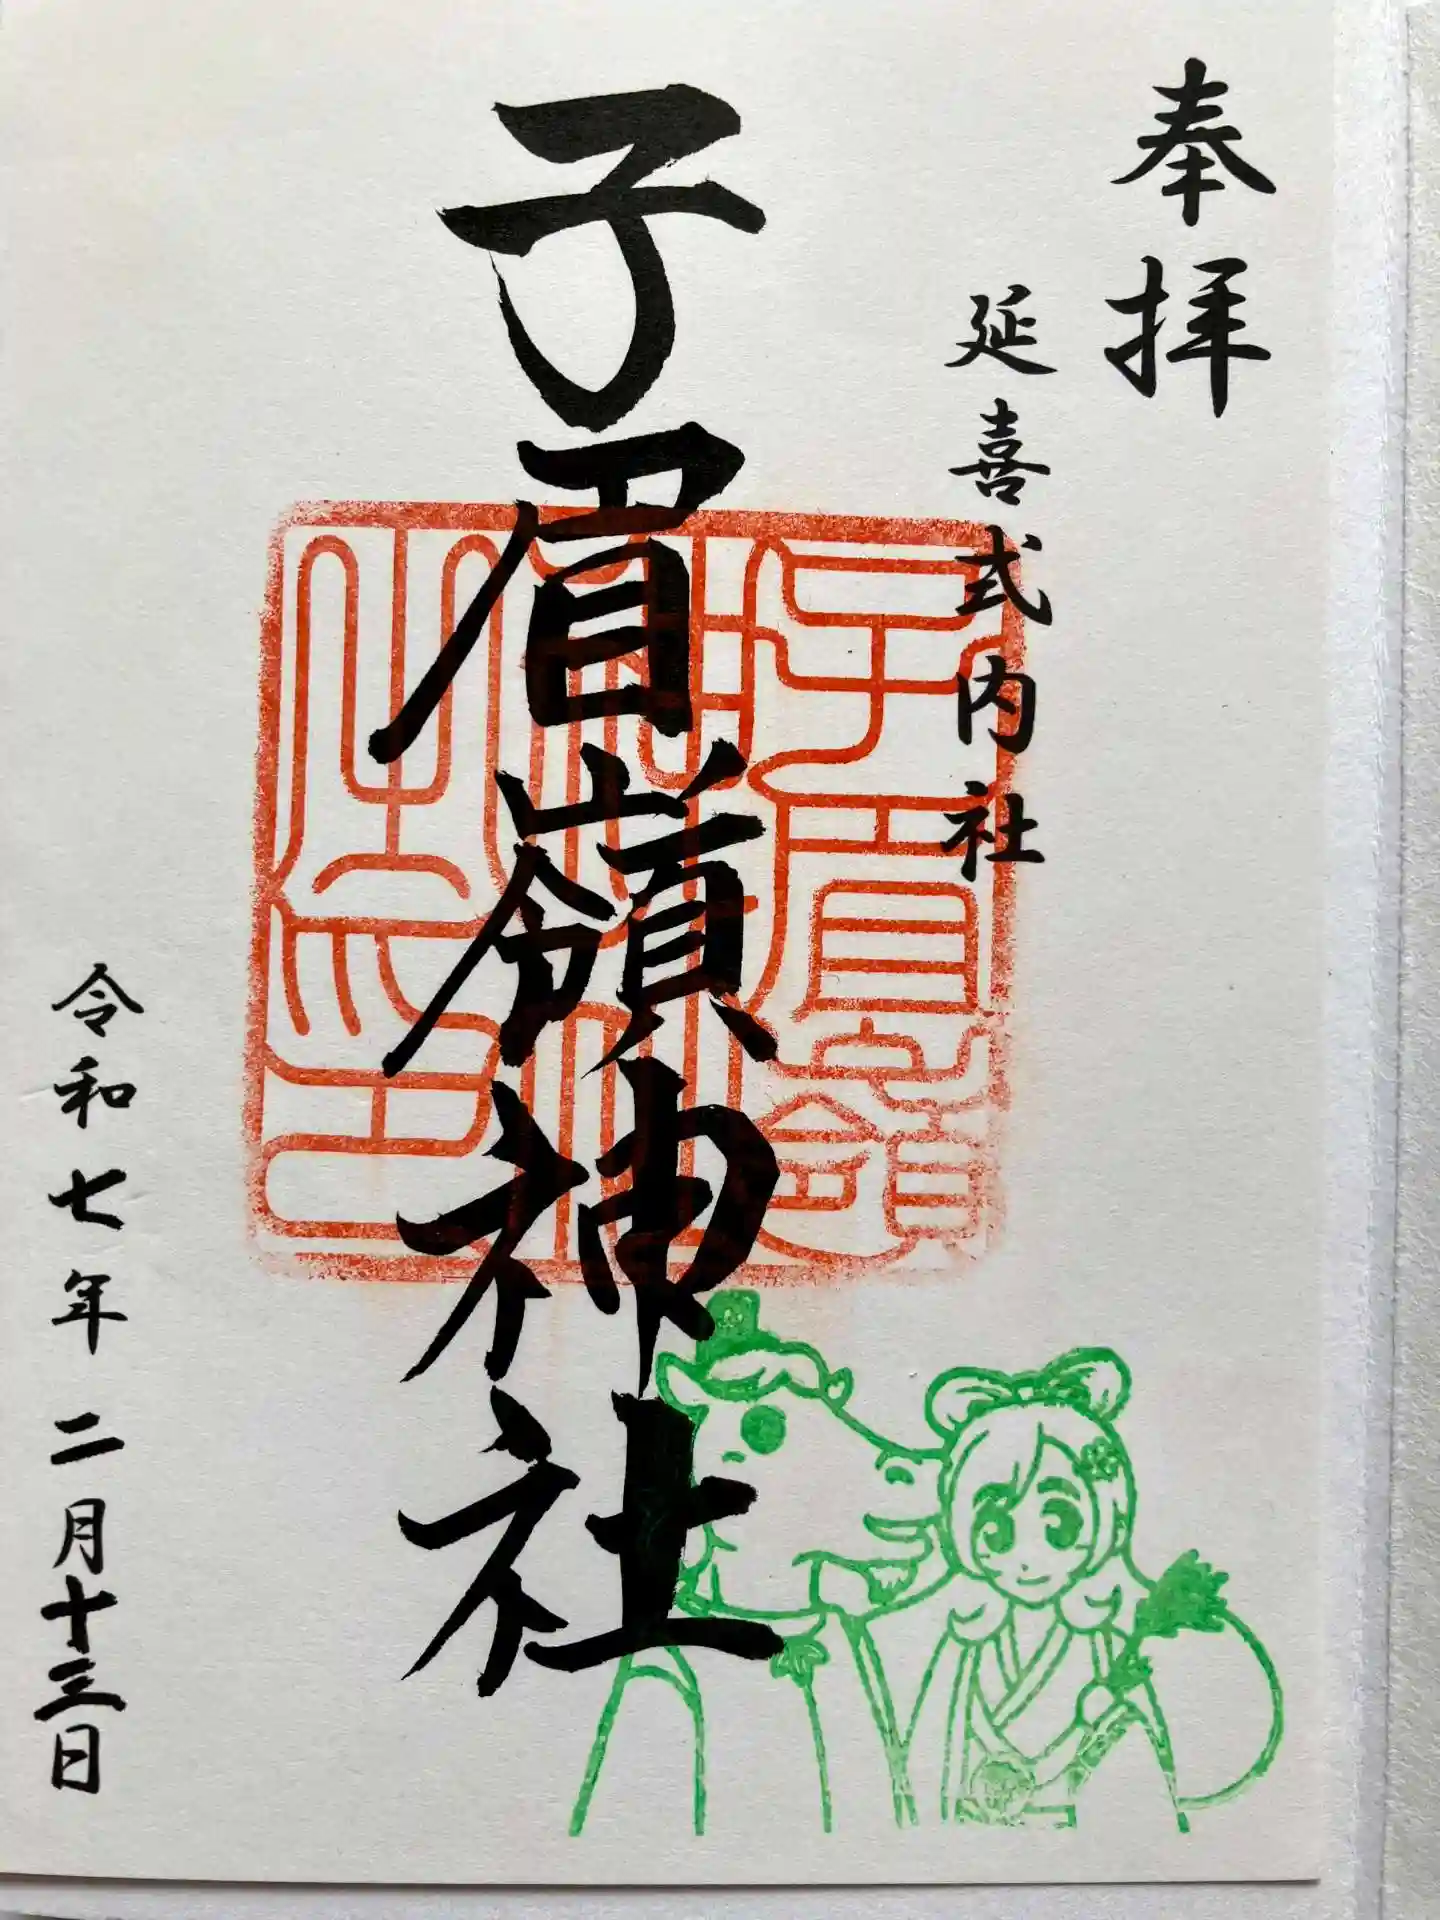 奉拝
延喜式内社
子眉嶺神社
子眉嶺
神社
之印
令和七年二月十三日